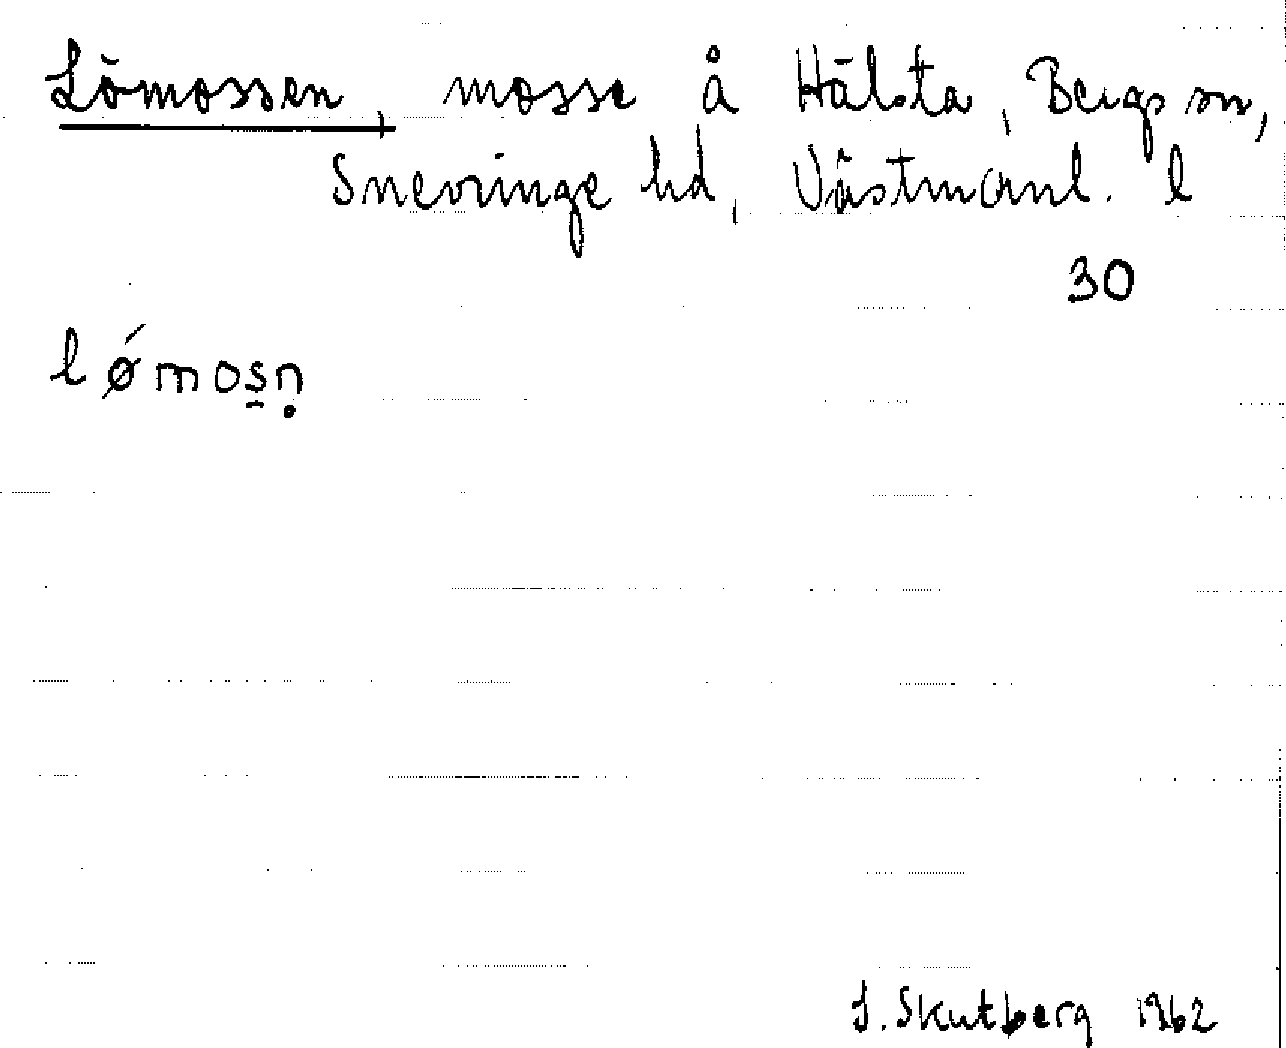 Lömossen, mosse å Hälsta, Bergs sn,
Snevringe hd, Västmanl. l
30
lǿmos̱ṇ
S. Skutberg 1962